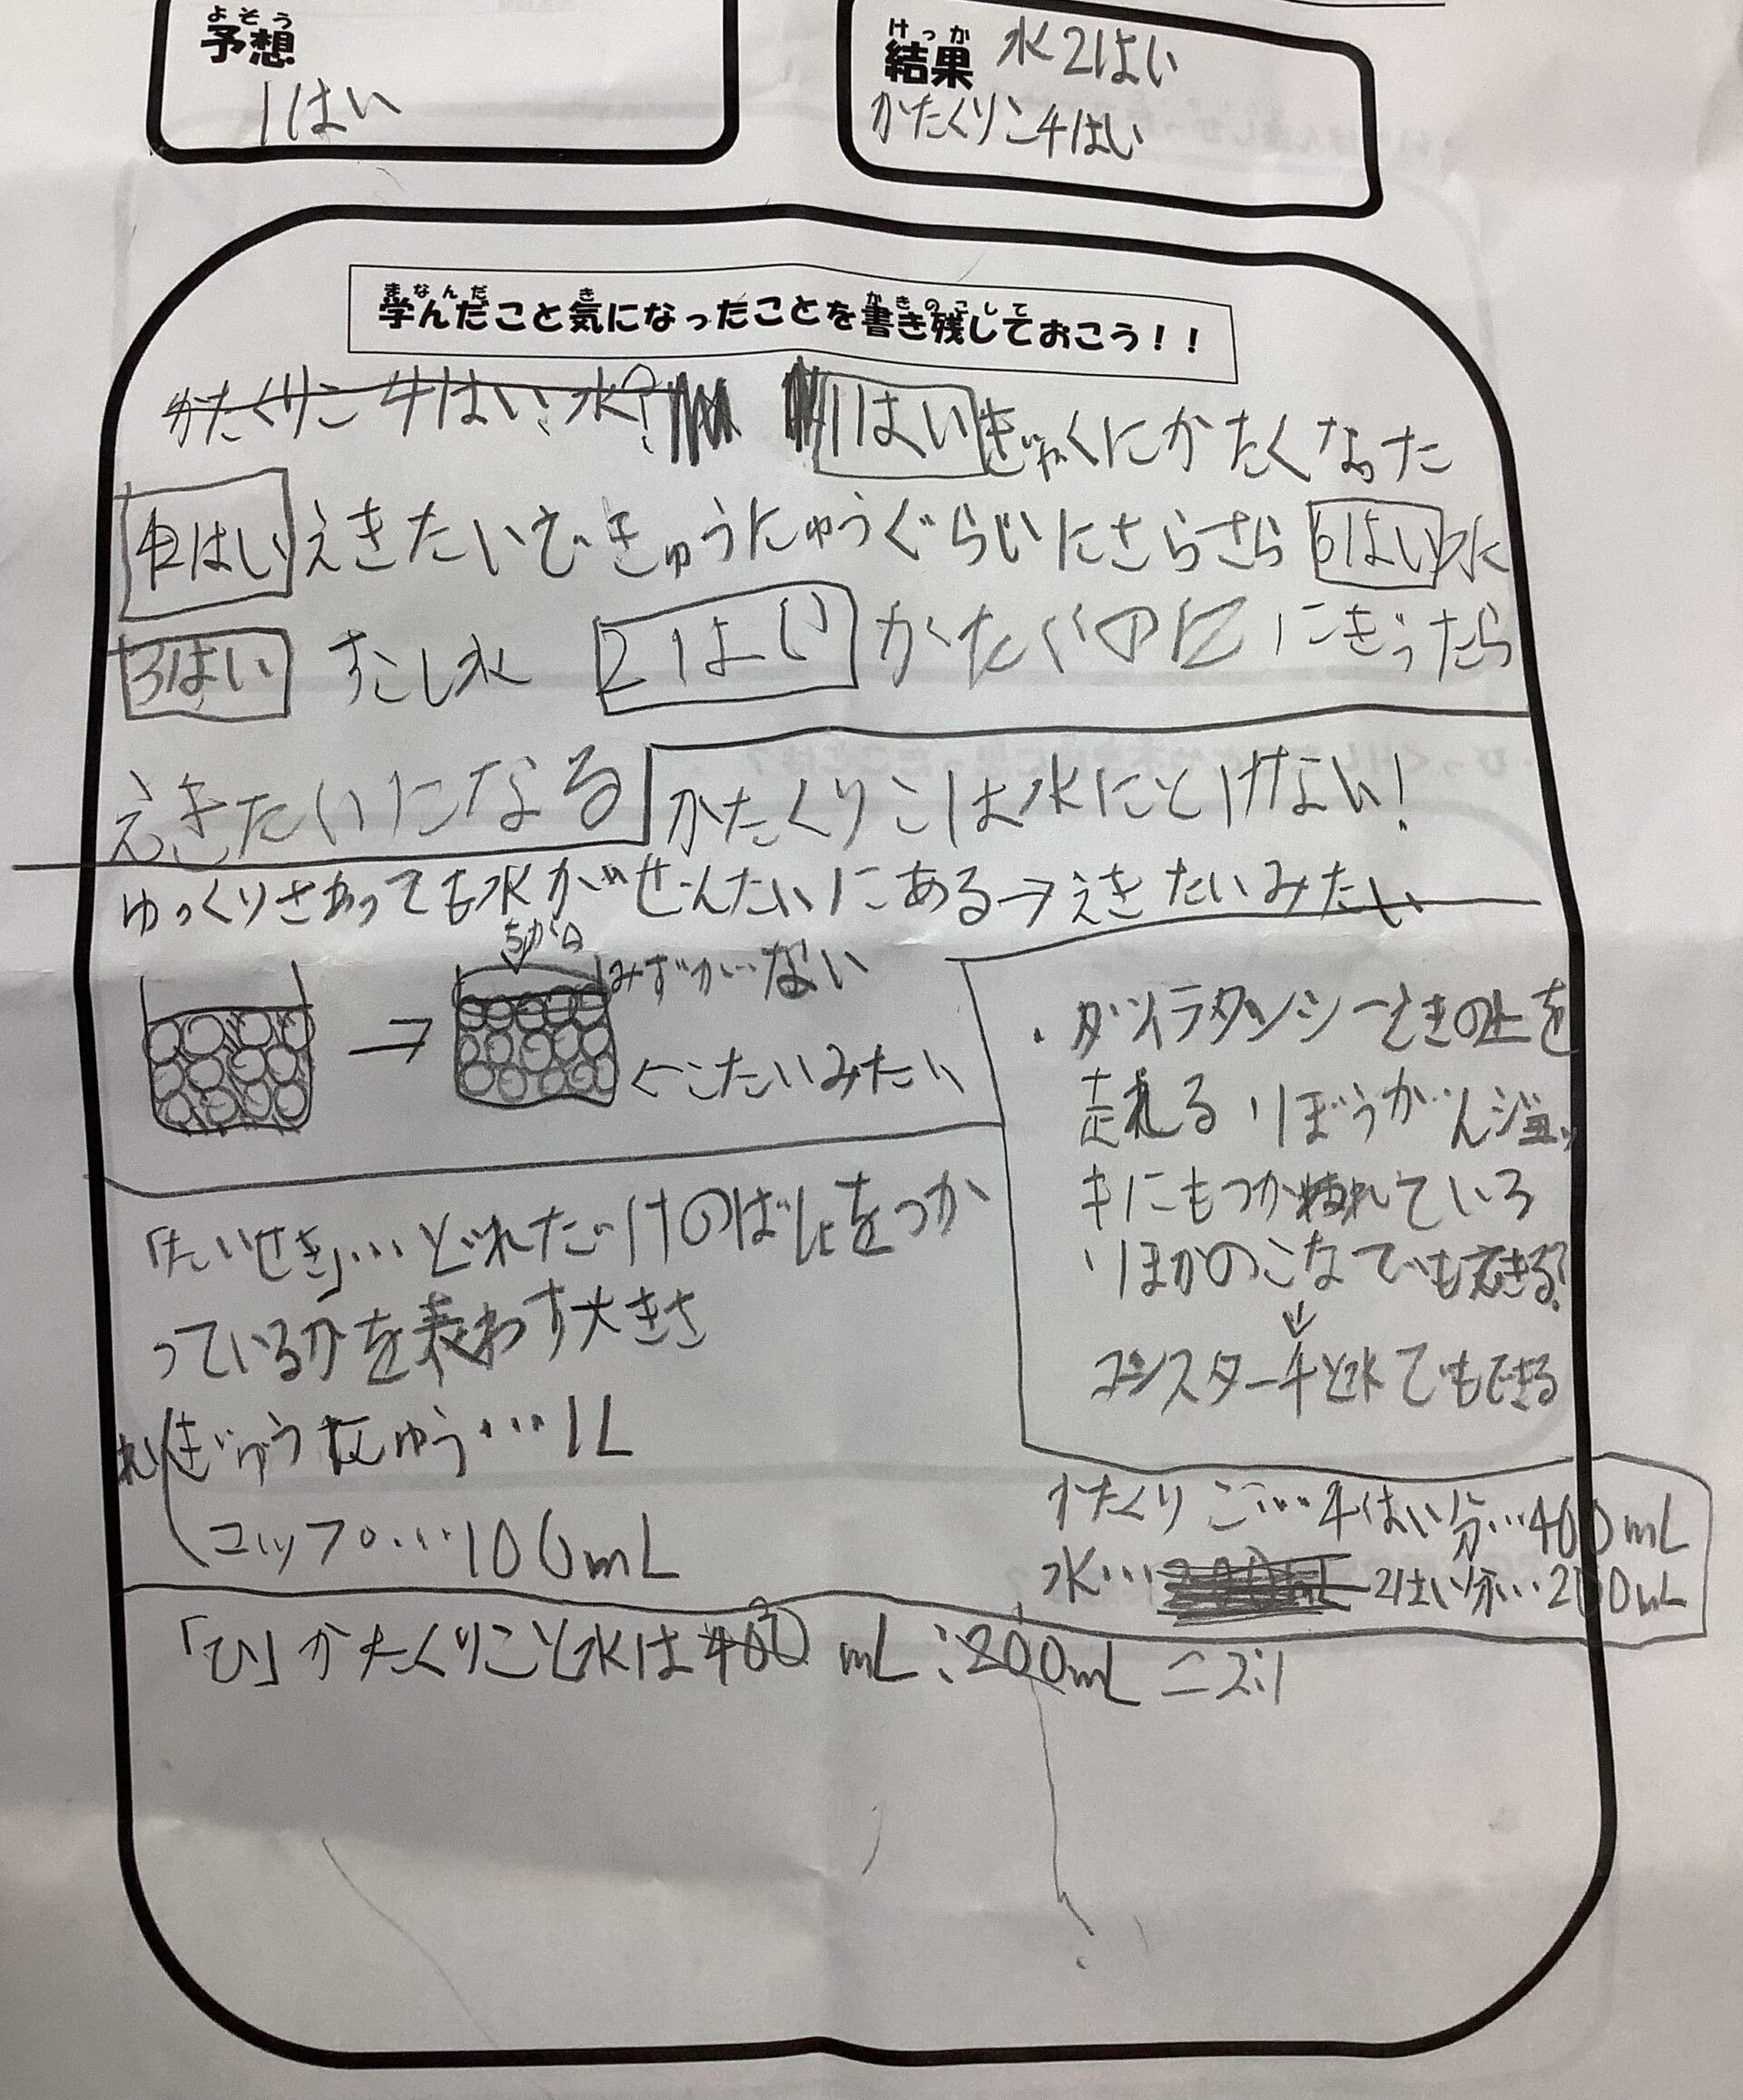 よそう
予想
1ぱい
けっか
結果 水2はい
かたくりこ4はい
まなんだ き かきのこして
学んだこと気になったことを書き残しておこう！！
かたくりこ4はい:水?
1はい ぎゃくにかたくなった
はい えきたいでぎゅうにゅうぐらいにさらさら 6はい 水
3ばい すこし水 2はい かたいのに にぎったら
えきたいになる かたくりこは水にとけない!
ゆっくりさわっても水がぜんたいにある→えきたいみたい
ちから
みずがない
⇒
←こたいみたい
・ダイラタンシーときの上を
走れる ぼうがんジョッ
キにもつかわれている
ほかのこなでもできる?
↓
コンスターチと水でもできる
「たいせき」…どれだけのばしょをつか
っているかを表わす大きさ
れい ぎゅうにゅう…1L
コップ…100mL
かたくりこ…4はい分…400mL
水…2はい分…200mL
「ひ」かたくりこと水は400mL:200mL=2:1